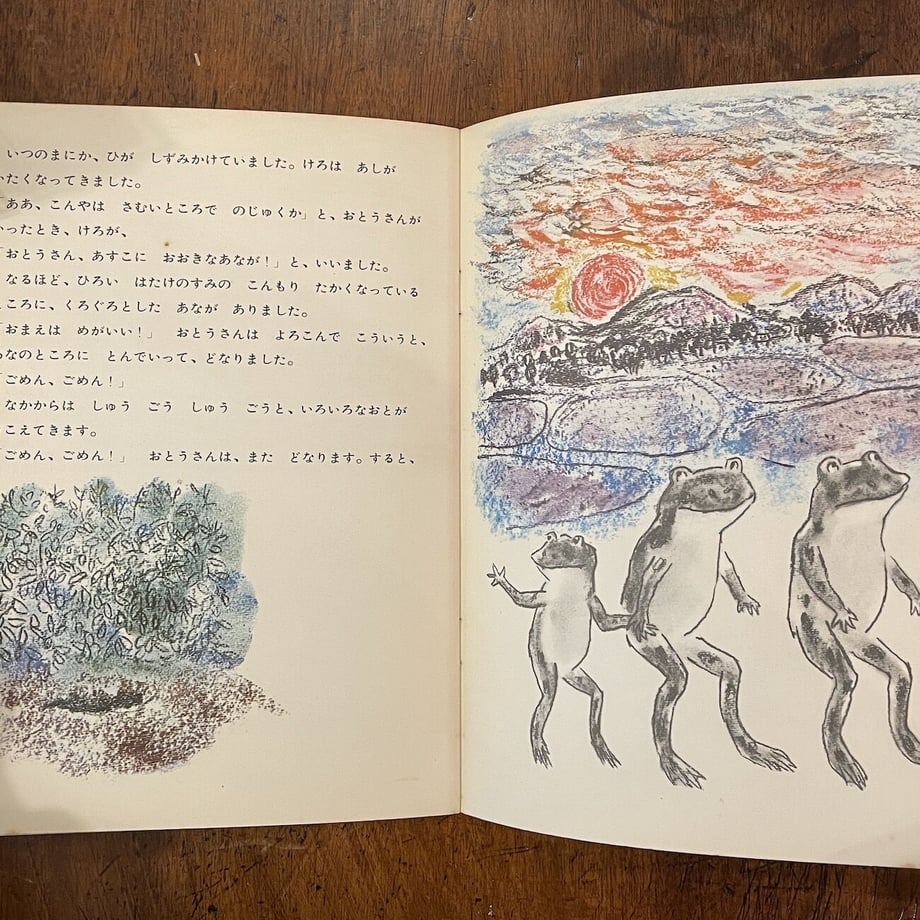 いつのまにか、ひが　しずみかけていました。けろは　あしが
たくなってきました。
「ああ、こんやは　さむいところで　のじゅくか」と、おとうさんが
ったとき、けろが、
「おとうさん、あすこに　おおきなあなが！」と、いいました。
なるほど、ひろい　はたけのすみの　こんもり　たかくなっている
ころに、くろぐろとした　あなが　ありました。
「おまえは　めがいい！」　おとうさんは　よろこんで　こういうと、
なのところに　とんでいって、どなりました。
「ごめん、ごめん！」
なかからは　しゅう　ごう　しゅう　ごうと、いろいろなおとが
こえてきます。
「ごめん、ごめん！」　おとうさんは、また　どなります。すると、